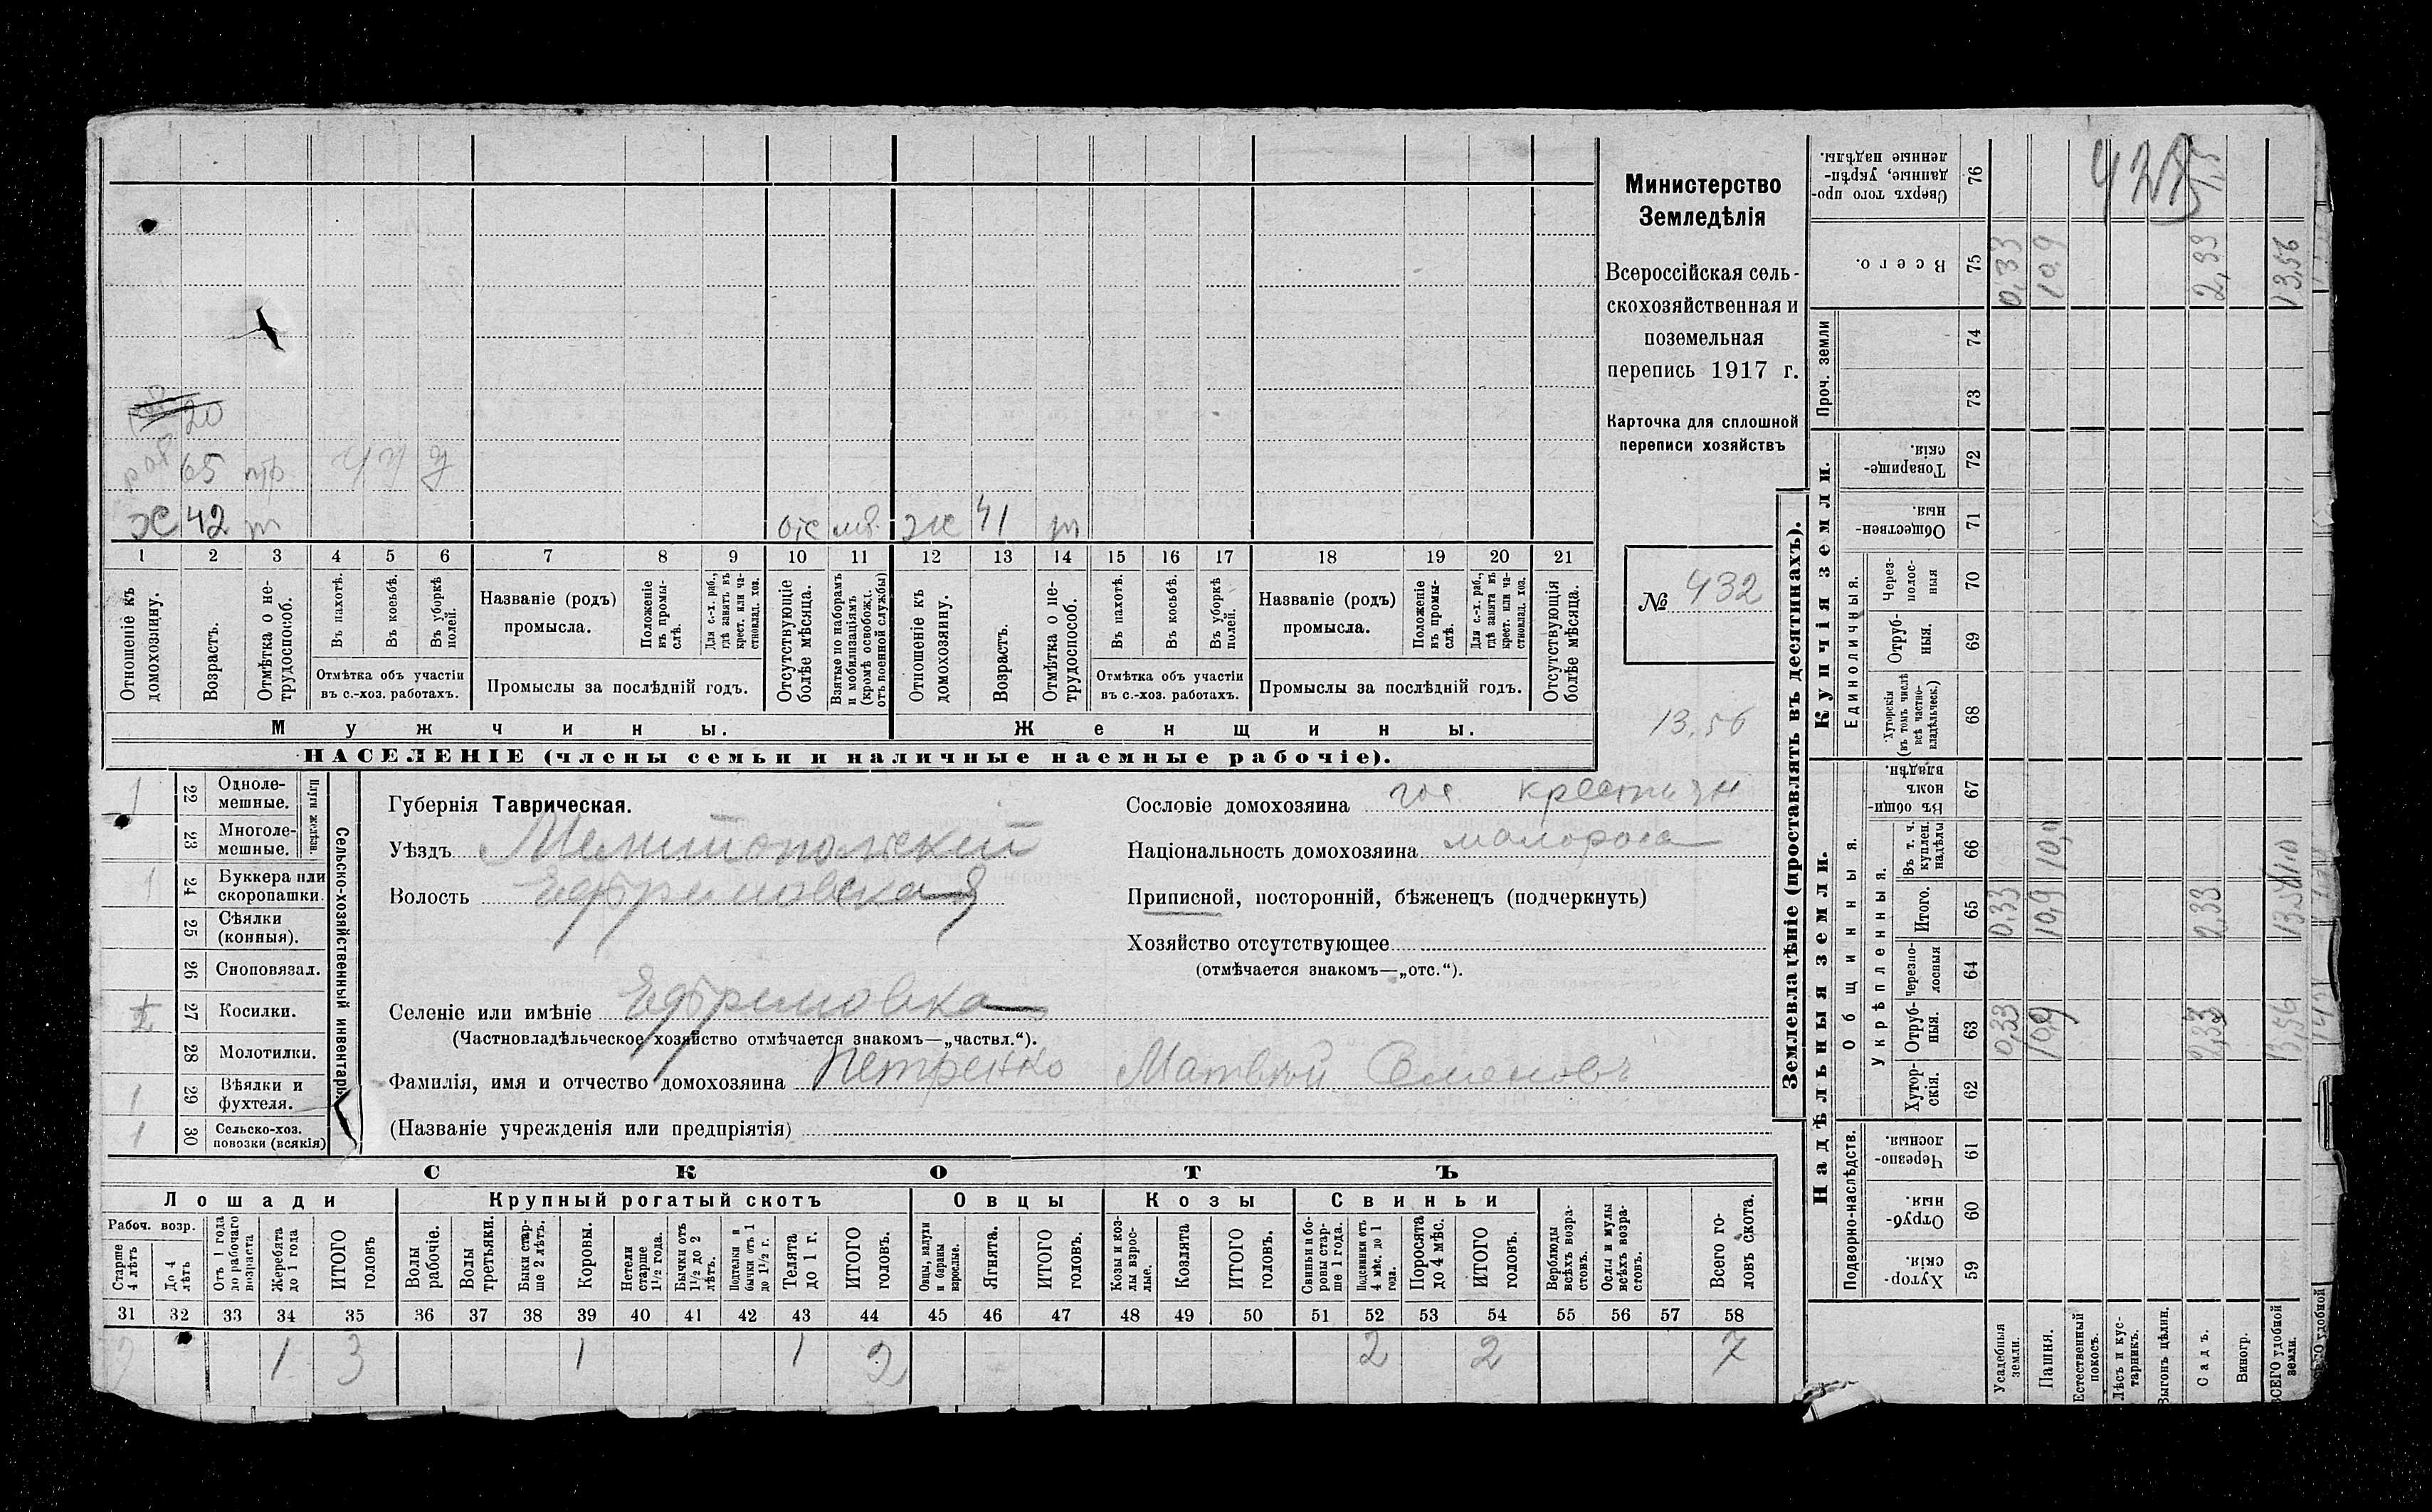 раб 20
раб 65 тр ч ч
х 42 т отс 41 т
1 2 3 4 5 6 7 8 9 10 11 12 13 14 15 16 17 18 19 20 21
Отношеніе къ домохозяину.
Возрастъ.
Отмѣтка о нетрудоспособ.
Въ пахотѣ.
Въ косьбѣ.
Въ уборкѣ полей.
Отмѣтка объ участіи
въ с.-хоз. работахъ.
Названіе (родъ)
промысла.
Положеніе въ промыслѣ.
Для с.-х. раб., гдѣ занятъ въ крест. или частновлад. хоз.
Промыслы за послѣдній годъ.
Отсутствующіе болѣе мѣсяца.
Взятые по наборамъ и мобилизаціямъ (кромѣ освобожд. отъ военной службы)
Отношеніе къ домохозяину.
Возрастъ.
Отмѣтка о нетрудоспособ.
Въ пахотѣ.
Въ косьбѣ.
Въ уборкѣ полей.
Отмѣтка объ участіи
въ с.-хоз. работахъ.
Названіе (родъ)
промысла.
Положеніе въ промыслѣ.
Для с.-х. раб., гдѣ занята въ крест. или частновлад. хоз.
Промыслы за послѣдній годъ.
Отсутствующія болѣе мѣсяца.
Мужчины.
Женщины.
НАСЕЛЕНІЕ (члены семьи и наличные наемные рабочіе).
Министерство
Земледѣлія
Всероссійская сель-
скохозяйственная и
поземельная
перепись 1917 г.
Карточка для сплошной
переписи хозяйствъ
№ 432
13,56
Сельско-хозяйственный инвентарь.
Плуги желѣзн.
1 22 Однолемешные.
23 Многолемешные.
1 24 Буккера или скоропашки.
25 Сѣялки (конныя).
26 Сноповязал.
27 Косилки.
28 Молотилки.
1 29 Вѣялки и фухтеля.
1 30 Сельско-хоз. повозки (всякія)
Губернія Таврическая.
Уѣздъ Мелитопольскій
Волость Ефремовская
Селеніе или имѣніе Ефремовка
(Частновладѣльческое хозяйство отмѣчается знакомъ—„частвл.“).
Фамилія, имя и отчество домохозяина Петренко Матвѣй Семеновъ
(Названіе учрежденія или предпріятія)
Сословіе домохозяина гос крестьян
Національность домохозяина малоросс
Приписной, посторонній, бѣженецъ (подчеркнуть)
Хозяйство отсутствующее
(отмѣчается знакомъ—„отс.“).
СКОТЪ
Лошади Крупный рогатый скотъ Овцы Козы Свиньи
Рабоч. возр.
Старше 4 лѣтъ
До 4 лѣтъ
Отъ 1 года до рабочаго возраста
Жеребята до 1 года
ИТОГО головъ
Волы рабочіе.
Волы третьяки.
Быки старше 2 лѣтъ.
Коровы.
Нетели старше 1 1/2 года.
Бычки отъ 1 1/2 до 2 лѣтъ.
Подтелки и бычки отъ 1 до 1 1/2 г.
Телята до 1 г.
ИТОГО головъ.
Овцы, валухи и бараны взрослые.
Ягнята.
ИТОГО головъ.
Козы и козлы взрослые.
Козлята
ИТОГО головъ.
Свиньи и боровы старше 1 года.
Подсвинки отъ 4 мѣс. до 1 года.
Поросята до 4 мѣс.
ИТОГО головъ.
Верблюды всѣхъ возрастовъ.
Ослы и мулы всѣхъ возрастовъ.
Всего головъ скота.
31 32 33 34 35 36 37 38 39 40 41 42 43 44 45 46 47 48 49 50 51 52 53 54 55 56 57 58
2 1 3 1 1 2 2 2 7
Землевладѣніе (проставлять въ десятинахъ).
Надѣльныя земли.
Купчія земли.
Проч. земли
Подворно-наслѣдств.
Общинныя.
Укрѣпленныя.
Единоличныя.
Хуторскія. 59
Отрубныя. 60
Черезполосныя. 61
Хуторскія. 62
Отрубныя. 63 0,33 10,9 2,33 13,56
Черезполосныя 64
Итого. 65 0,33 10,9 2,33 13,56
Въ т. ч. куплен. надѣлы 66
Въ общинномъ владѣн. 67
Хуторскія (въ томъ числѣ всѣ частновладѣльческ.) 68
Отрубныя. 69
Черезполосныя 70
Общественныя. 71
Товарищескія. 72
73
74
Всего. 75 0,33 10,9 2,33 13,56
Сверхъ того проданные, укрѣпленные надѣлы. 76
Усадебныя земли.
Пашня.
Естественный покосъ.
Лѣсъ и кустарникъ.
Выгонъ цѣлин.
Садъ.
Виногр.
ВСЕГО удобной земли.